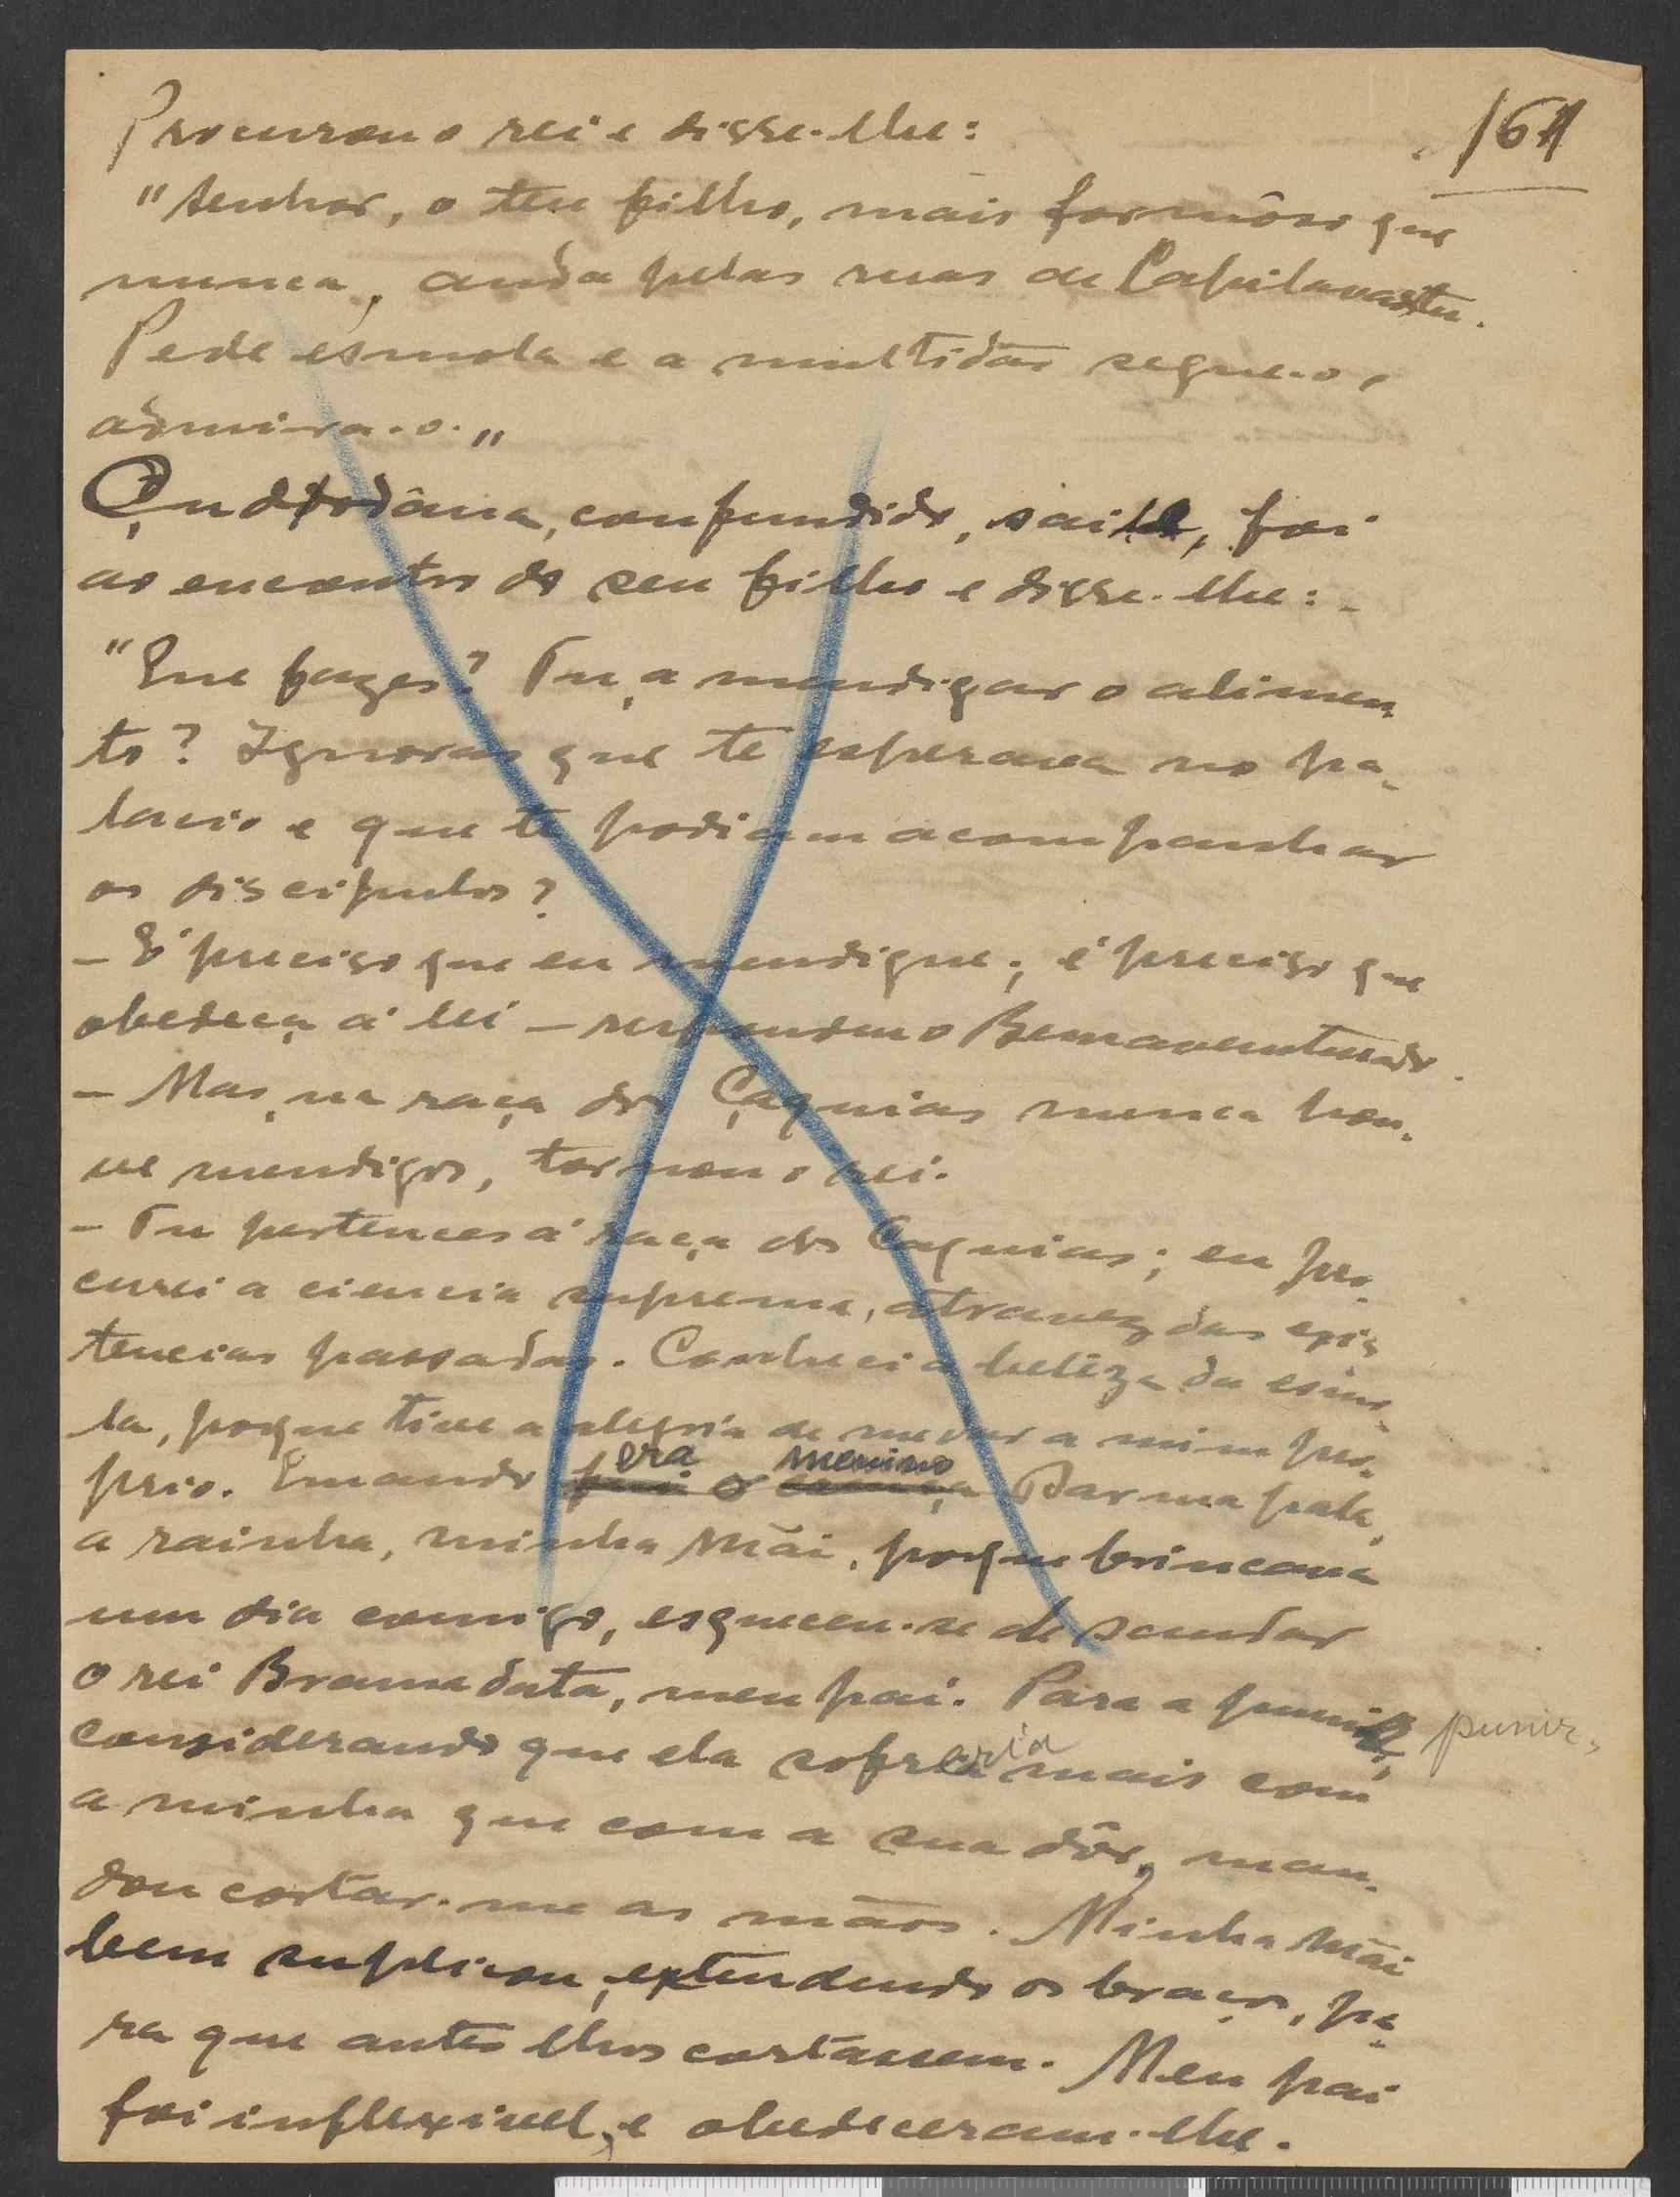 161
Procurou o rei e disse-lhe:
"Senhor, o teu filho, mais formôso que
nunca, anda pelas ruas de Capilavastu.
Pede esmola e a multidão segue-o,
admira-o."
Çudodâna, confundido, saiu, foi
ao encontro do seu filho e disse-lhe:-
"Que fazes? Tu, a mendigar o alimen-
to? Ignoras que te esperava no pa-
lacio e que te podiam acompanhar
os discipulos?
- É preciso que eu mendigue; é preciso que
obedeça á lei - respondeu o Bemaventurado.
- Mas, na raça dos Çaquias nunca hou-
ve mendigos, tornou o rei.
- Tu pertences á raça dos Çaquias; eu pro-
curei a ciencia suprema, atravez das exis-
tencias passadas. Conheci a beleza da esmo-
la, porque tive a alegria de me dar a mim pro-
prio. Quando fui era o criança menino Darmapala,
a rainha, minha Mãi, porque brincava
um dia comigo, esqueceu-se de saudar
o rei Bramadata, meu pai. Para a punir, punir,
considerando que ela sofreria mais com
a minha que com a sua dôr, man-
dou cortar-me as mãos. Minha Mãi
bem suplicou, extendendo os braços, pa-
ra que antes lhos cortassem. Meu pai
foi inflexivel, e obedeceram-lhe.